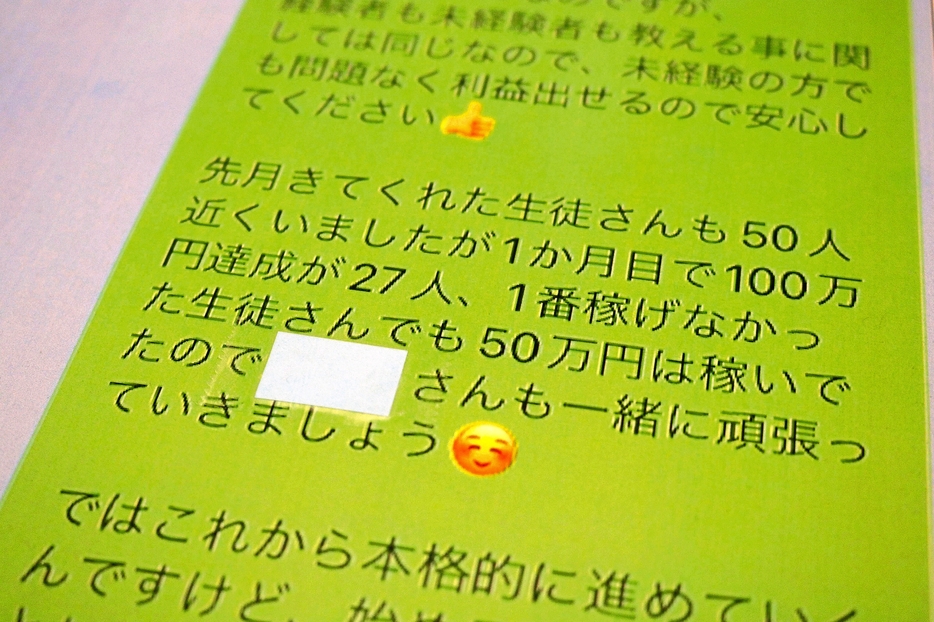 なのですが、
経験者も未経験者も教える事に関
しては同じなので、未経験の方で
も問題なく利益出せるので安心し
てください👍
先月きてくれた生徒さんも50人
近くいましたが1か月目で100万
円達成が27人、1番稼げなかっ
た生徒さんでも50万円は稼いで
たので さんも一緒に頑張っ
ていきましょう☺️
ではこれから本格的に進めていく
んですけど、始め